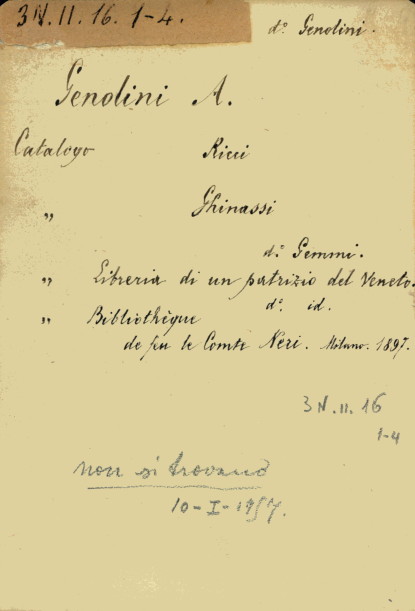 3N.II.16. 1-4.
d.º Genolini.
Genolini A.
Catalogo Ricci
„ Ghinassi
d.º Gemmi.
„ Libreria di un patrizio del Veneto.
d.º id.
„ Bibliothèque
de feu le Comte Neri. Milano. 1897.
3N.II.16
1-4
non si trovano
10-I-1957.